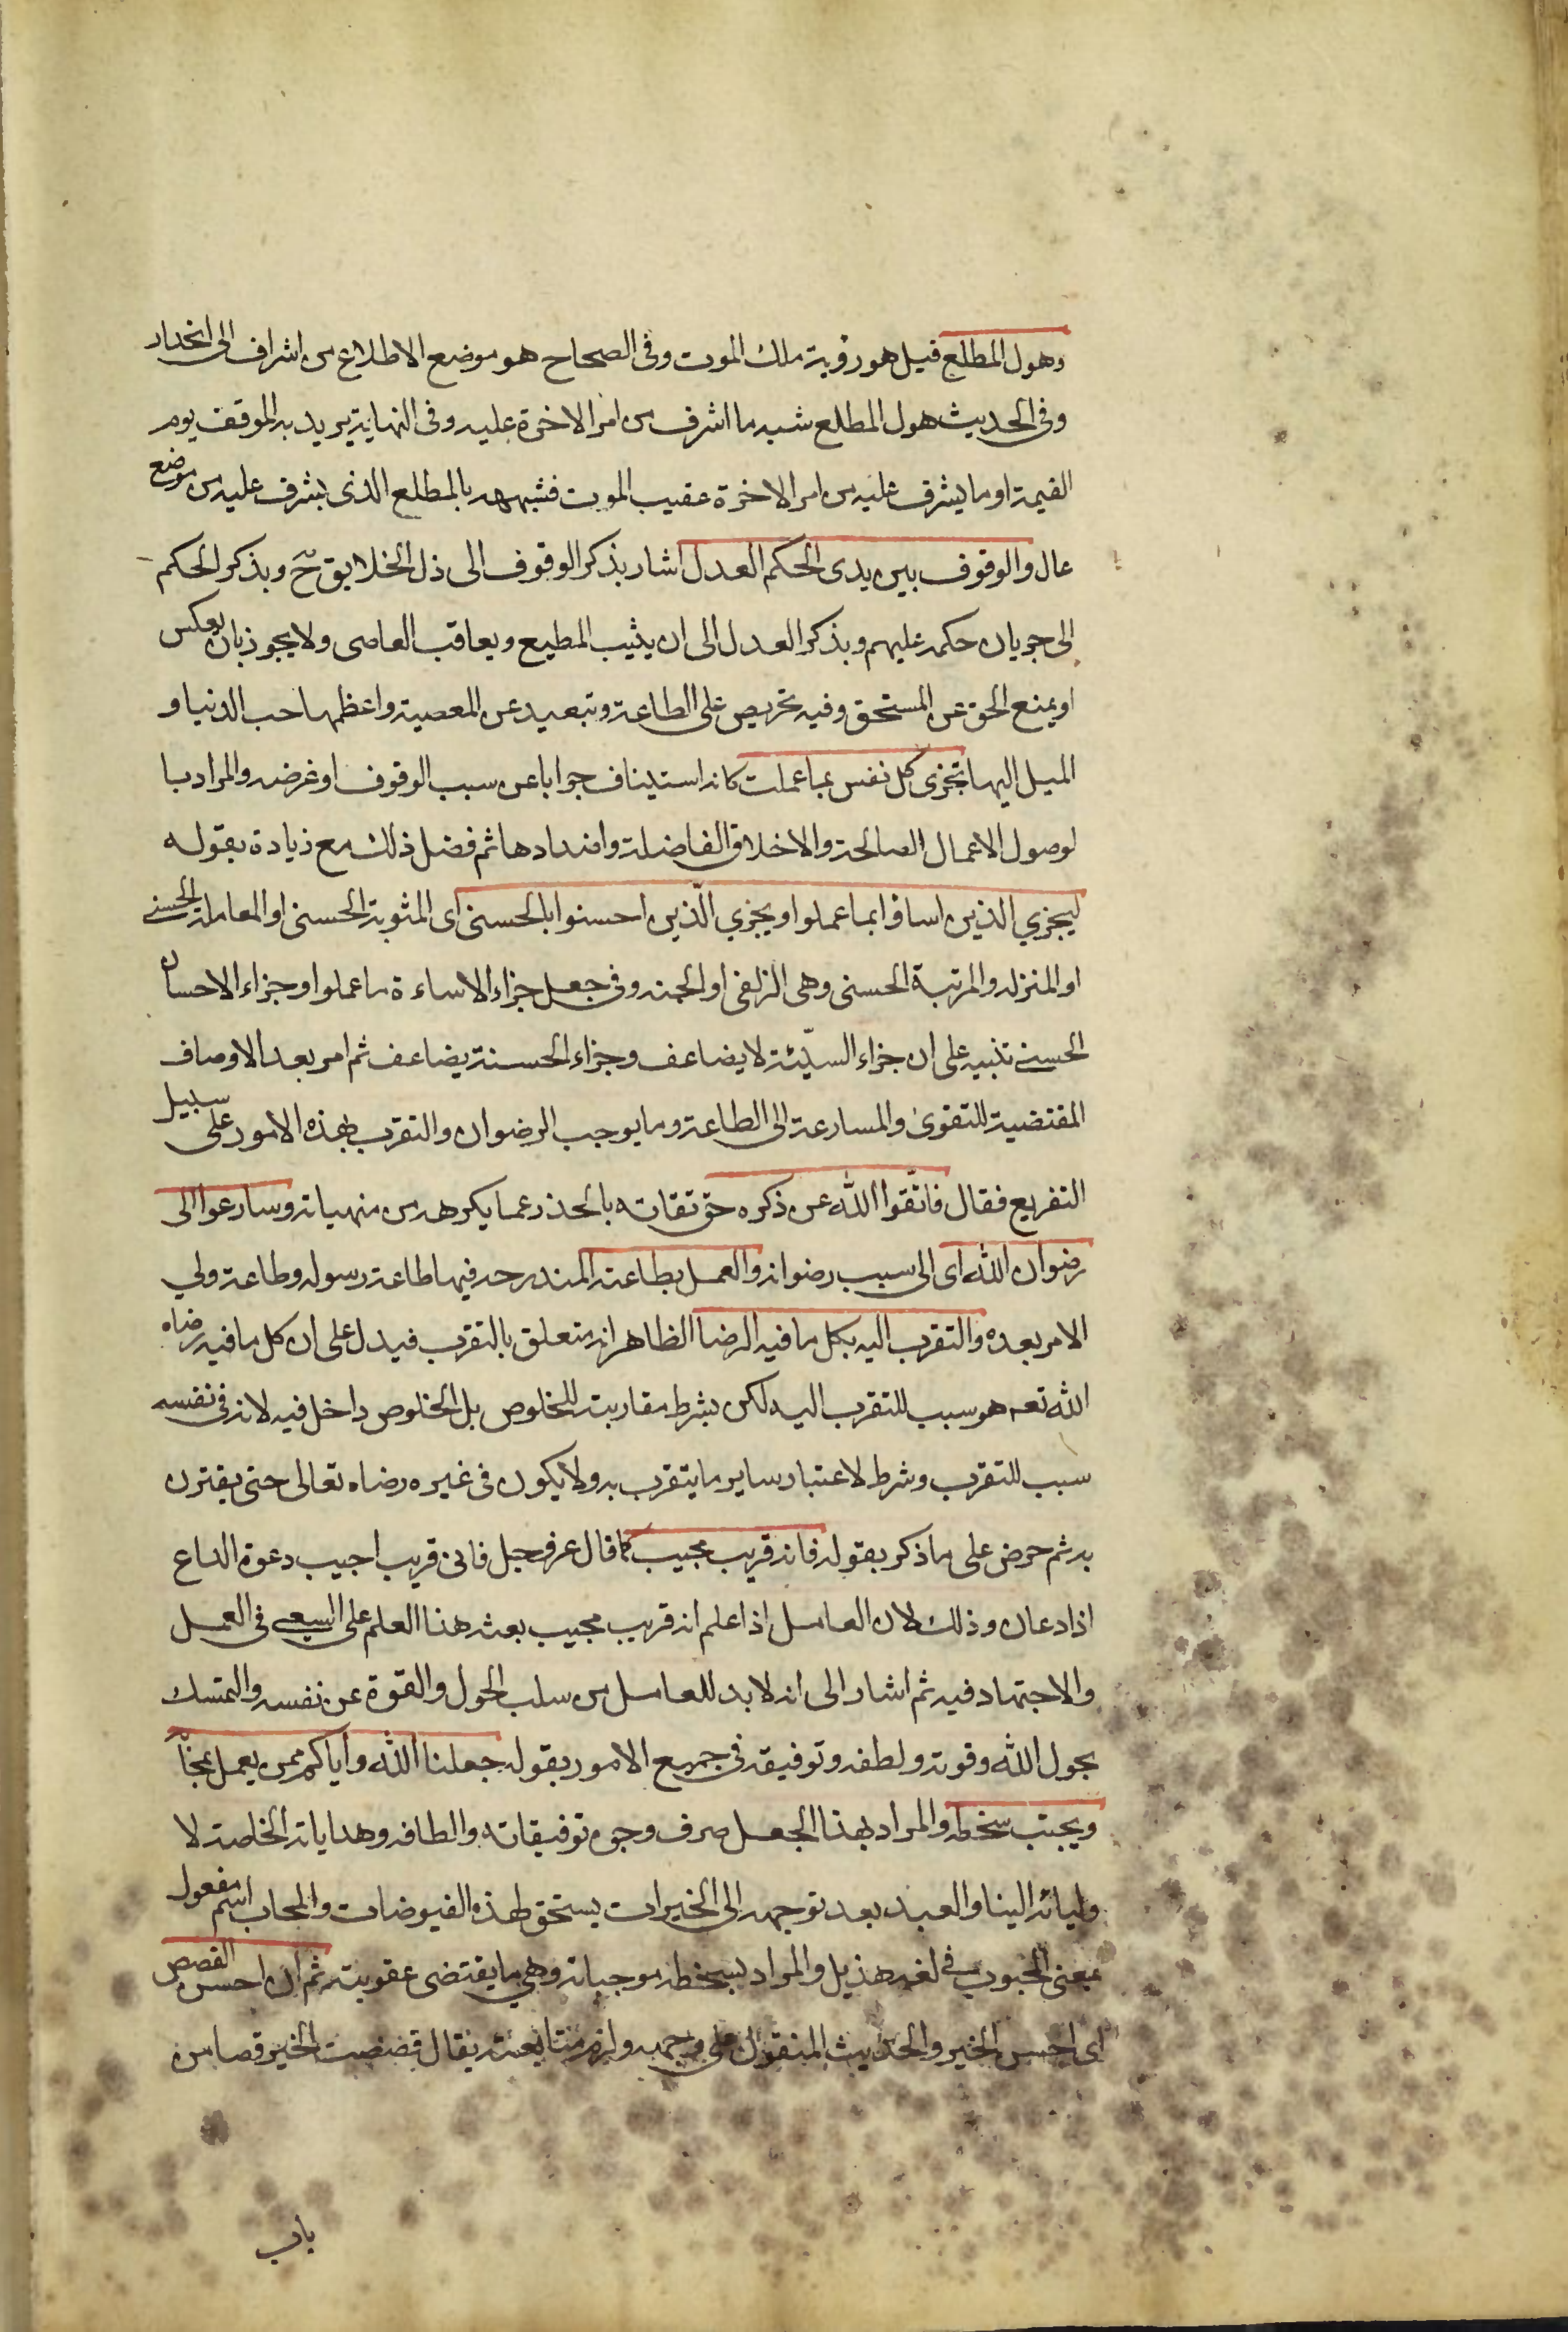 وهول المطلع قيل هو رؤية ملك الموت وفى الصحاح هو موضع الاطلاع من اشراف الى انحدار
وفى الحديث هول المطلع شبه ما اشرف من امر الاخرة عليه وفى النهاية يريد به الموقف يوم
القيمة او ما يشرف عليه من امر الاخرة عقيب الموت فشبهه بالمطلع الذى يشرف عليه من موضع
عال والوقوف بين يدى الحكم العدل اشار بذكر الوقوف الى ذل الخلايق ح وبذكر الحكم
الى جريان حكمه عليهم وبذكر العدل الى ان يثيب المطيع ويعاقب العاصى ولا يجوز بان يعكس
او يمنع الحق عن المستحق وفيه تحريص على الطاعة وتبعيد عن المعصية واعظمها حب الدنيا و
الميل اليها تجزى كل نفس بما عملت كانه استيناف جوابا عن سبب الوقوف او غرضه والمراد با
لوصول الاعمال الصالحة والاخلاق الفاضلة واضدادها ثم فصل ذلك مع زيادة بقوله
ليجزي الذين اساؤا بما عملوا ويجزي الّذين احسنوا بالحسنى اى المثوبة الحسنى او المعاملة الحسنى
او المنزله والمرتبة الحسنى وهى الزلفى او الجنه وفى جعل جزاء الاساءة ما عملوا وجزاء الاحسان
الحسنى تنبيه على ان جزاء السيّئة لا يضاعف وجزاء الحسنة يضاعف ثم امر بعد الاوصاف
المقتضية للتقوى والمسارعة الى الطاعة وما يوجب الرضوان والتقرب بهذه الامور على سبيل
التفريع فقال فاتّقوا اللّه عن ذكره حق تقاته بالحذر عما يكرهه من منهياته وسارعوا الى
رضوان اللّه اى الى سبب رضوانه والعمل بطاعته المندرجه فيها طاعة رسوله وطاعة ولي
الامر بعده والتقرب اليه بكل ما فيه الرضا الظاهر انه متعلق بالتقرب فيدل على ان كل ما فيه رضاه
اللّه تعه هو سبب للتقرب اليه لكن بشرط مقاربته للخلوص بل الخلوص داخل فيه لانه فى نفسه
سبب للتقرب وشرط لاعتبار ساير ما يتقرب به ولا يكون فى غيره رضاه تعالى حتى يقترن
به ثم حرض على ما ذكر بقوله فانه قريب مجيب كما قال عز وجل فانى قريب اجيب دعوة الداع
اذا دعان وذلك لان العامل اذا علم انه قريب مجيب بعثه هذا العلم على السعى فى العمل
والاجتهاد فيه ثم اشار الى انه لا بد للعامل من سلب الحول والقوة عن نفسه والتمسك
بحول اللّه وقوته ولطفه وتوفيقه فى جميع الامور بقوله جعلنا اللّه واياكم ممن يعمل بمحابّه
ويجتنب سخطه والمراد بهذا الجعل صرف وجوه توفيقاته والطافه وهداياته الخاصة لا
وليائه الينا والعبد بعد توجهه الى الخيرات يستحق لهذه الفيوضات والمحاب اسم مفعول
بمعنى المحبوب في لغه هذيل والمراد بسخطه موجباته وهي ما يقتضى عقوبته ثم ان احسن القصص
اى احسن الخبر والحديث المنقول على وجهه ولزم متابعته يقال قصصت الخبر قصا من
باب